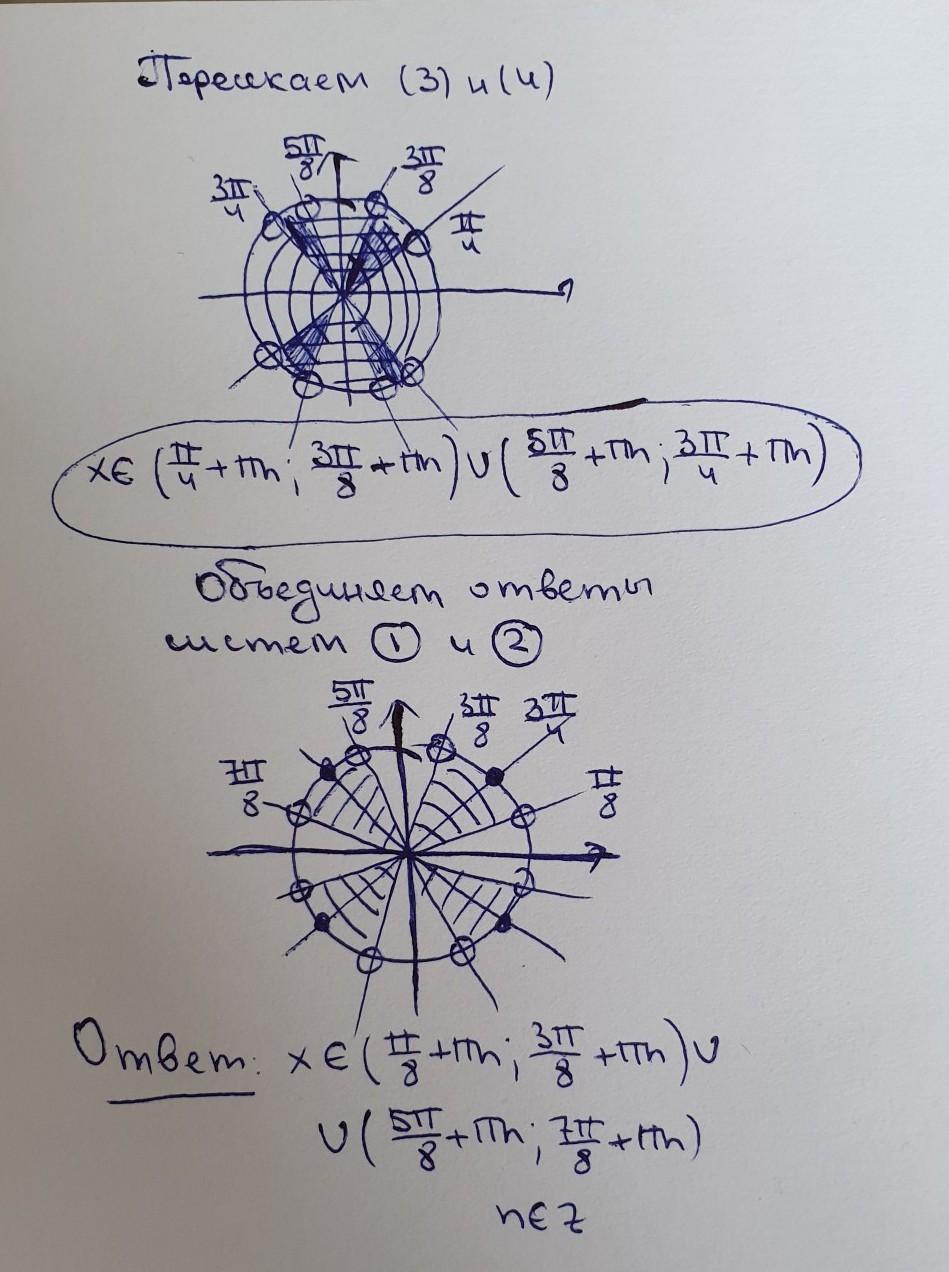 Пересекаем (3) и (4)
5π/8 3π/8
3π/4 π/4
x∈(π/4+πn; 3π/8+πn)∪(5π/8+πn; 3π/4+πn)
Объединяем ответы
систем ① и ②
5π/8 3π/8 3π/4
7π/8 π/8
Ответ: x∈(π/8+πn; 3π/8+πn)∪
∪(5π/8+πn; 7π/8+πn)
n∈Z